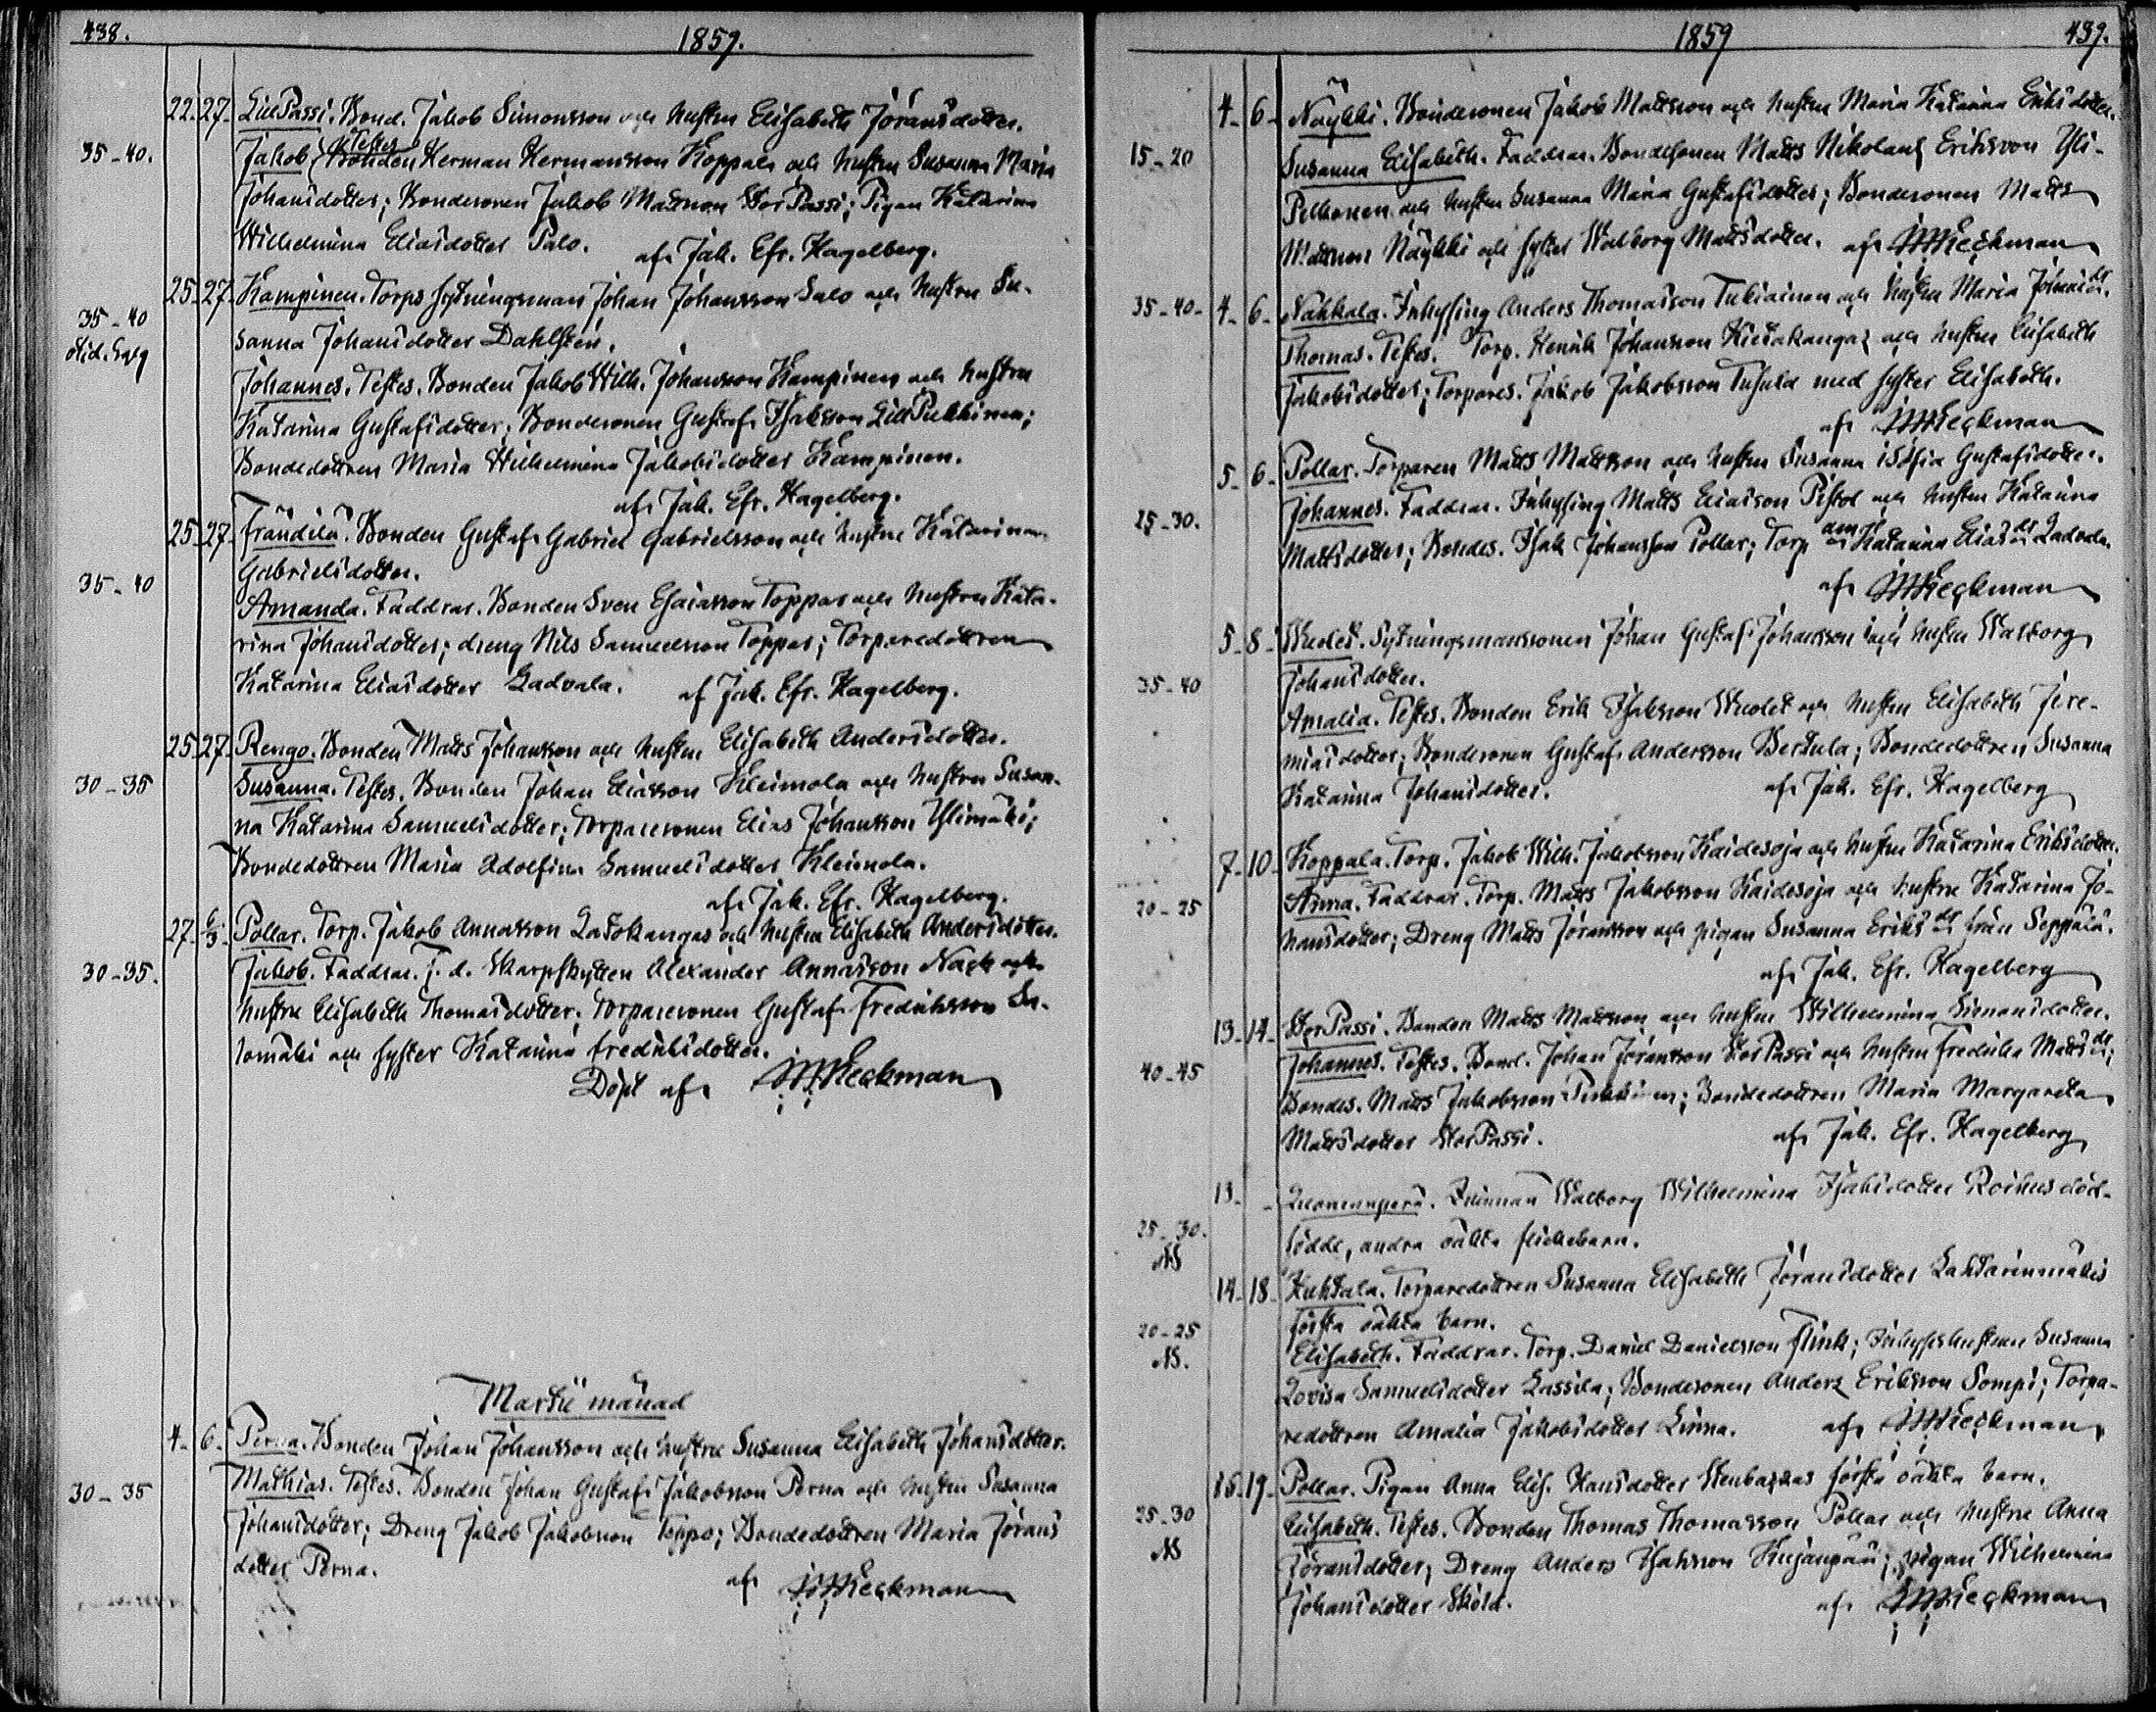 438.
1859.
22. 27. LillPassi. Bond. Jakob Simonsson och hustru Elisabeth Jöransdotter.
35-40. Jakob. Testes Bonden Herman Hermansson Koppala och hustru Susanna Maria
Johansdotter; Bondesonen Jakob Mattsson StorPassi; Pigan Katarina
Wilhelmina Eliasdotter Palo. af Jak. Efr. Hagelberg.
25. 27. Kampinen. Torps sytningsman Johan Johansson Salo och hustru Su-
35-40
sanna Johansdotter Dahlsten.
Johannes. Testes. Bonden Jakob Wilh. Johansson Kampinen och hustru
Katarina Gustafsdotter; Bondesonen Gustaf Isaksson LillPukkinen;
Bondedottren Maria Wilhelmina Jakobsdotter Kampinen.
af Jak. Efr. Hagelberg.
25. 27. Frändilä. Bonden Gustaf Gabriel Gabrielsson och hustru Katarina
Gabrielsdotter.
35-40
Amanda. Faddrar. Bonden Sven Esaiasson Toppar och hustru Kata-
rina Johansdotter; dreng Nils Samuelsson Toppar; Torparedottren
Katarina Eliasdotter Ladvala. af Jak. Efr. Hagelberg.
25. 27. Rengo. Bonden Matts Johansson och hustru Elisabeth Andersdotter.
30-35 Susanna. Testes. Bonden Johan Eliasson Kleimola och hustru Susan-
na Katarina Samuelsdotter; Torparesonen Elias Johansson Ylimäki;
Bondedottren Maria Adolfina Samuelsdotter Kleimola.
af Jak. Efr. Hagelberg.
27. 6/3. Pollar. Torp. Jakob Annasson Latokangas och hustru Elisabeth Andersdotter.
30-35. Jakob. Faddrar. f. d. Skarpskytten Alexander Annasson Nack och
hustru Elisabeth Thomasdotter; Torparesonen Gustaf Fredriksson Sa-
lomäki och syster Katarina Fredriksdotter.
Döpt af Wieckman
Martii månad
4. 6. Perna. Bonden Johan Johansson och hustru Susanna Elisabeth Johansdotter.
30-35 Mathias. Testes. Bonden Johan Gustaf Jakobsson Perna och hustru Susanna
Johansdotter; Dreng Jakob Jakobsson Toppo; Bondedottren Maria Jörans
dotter Perna.
af Wieckman
1859
439.
4. 6. Näykki. Bondesonen Jakob Mattsson och hustru Maria Katarina Eriksdotter.
15-20 Susanna Elisabeth. Faddrar. Bondesonen Matts Nikolaus Eriksson Yli-
Pelkonen och hustru Susanna Maria Gustafsdotter; Bondesonen Matts
Mattsson Näykki och syster Walborg Mattsdotter. af Wieckman
35-40. 4. 6. Nahkala. Inhysing Anders Thomasson Tukiainen och hustru Maria Johans dr.
Thomas. Testes. Torp. Henrik Johansson Kietäkangas och hustru Elisabeth
Jakobsdotter; Torpares. Jakob Jakobsson Tusula med syster Elisabeth.
af Wieckman
5. 6. Pollar. Torparen Matts Mattsson och hustru Susanna Sofia Gustafsdotter.
25-30. Johannes. Faddrar. Inhysing Matts Eliasson Pistol och hustru Katarina
Mattsdotter; Bondes. Isak Johansson Pollar; Torp Katarina Elias dr Ladvala.
af Wieckman
5. 8. Wuolet. Sytningsmanssonen Johan Gustaf Johansson och hustru Walborg
35-40 Johansdotter.
Amalia. Testes. Bonden Erik Isaksson Wuolet och hustru Elisabeth Jere-
miasdotter; Bondesonen Gustaf Andersson Bertula; Bondedottren Susanna
Katarina Johansdotter. af Jak. Efr. Hagelberg
7. 10. Koppala. Torp. Jakob Wilh. Jakobsson Kaidesoja och hustru Katarina Eriksdotter.
20-25 Anna. Faddrar. Torp. Matts Jakobsson Kaidesoja och hustru Katarina Jo-
hansdotter; Dreng Matts Jöransson och pigan Susanna Eriks dr från Seppälä.
af Jak. Efr. Hagelberg
13. 14. StorPassi. Bonden Matts Mattsson och hustru Wilhelmina Simonsdotter.
40-45 Johannes. Testes. Bond. Johan Jöransson StorPassi och hustru Fredrika Matts dr;
Bondes. Matts Jakobsson Pukkinen; Bondedottren Maria Margareta
Mattsdotter StorPassi. af Jak. Efr. Hagelberg
13. Luomanperä. Qvinnan Walborg Wilhelmina Isaksdotter Roihus död-
25-30. födde, andra oäkta flickebarn.
NS
14. 18. Huhtala. Torparedottren Susanna Elisabeth Jöransdotter Lahdarinmäkis
20-25 första oäkta barn.
NS. Elisabeth. Faddrar. Torp. Daniel Danielsson Flink; Inhyseshustrun Susanna
Lovisa Samuelsdotter Lassila; Bondesonen Anders Eriksson Sompi; Torpa-
redottren Amalia Jakobsdotter Linna. af Wieckman
16. 19. Pollar. Pigan Anna Elis. Hansdotter Stenbackas första oäkta barn.
25-30 Elisabeth. Testes. Bonden Thomas Thomasson Pollar och hustru Anna
NS Jöransdotter; Dreng Anders Isaksson Kujanpää; pigan Wilhelmina
Johansdotter Sköld. af Wieckman